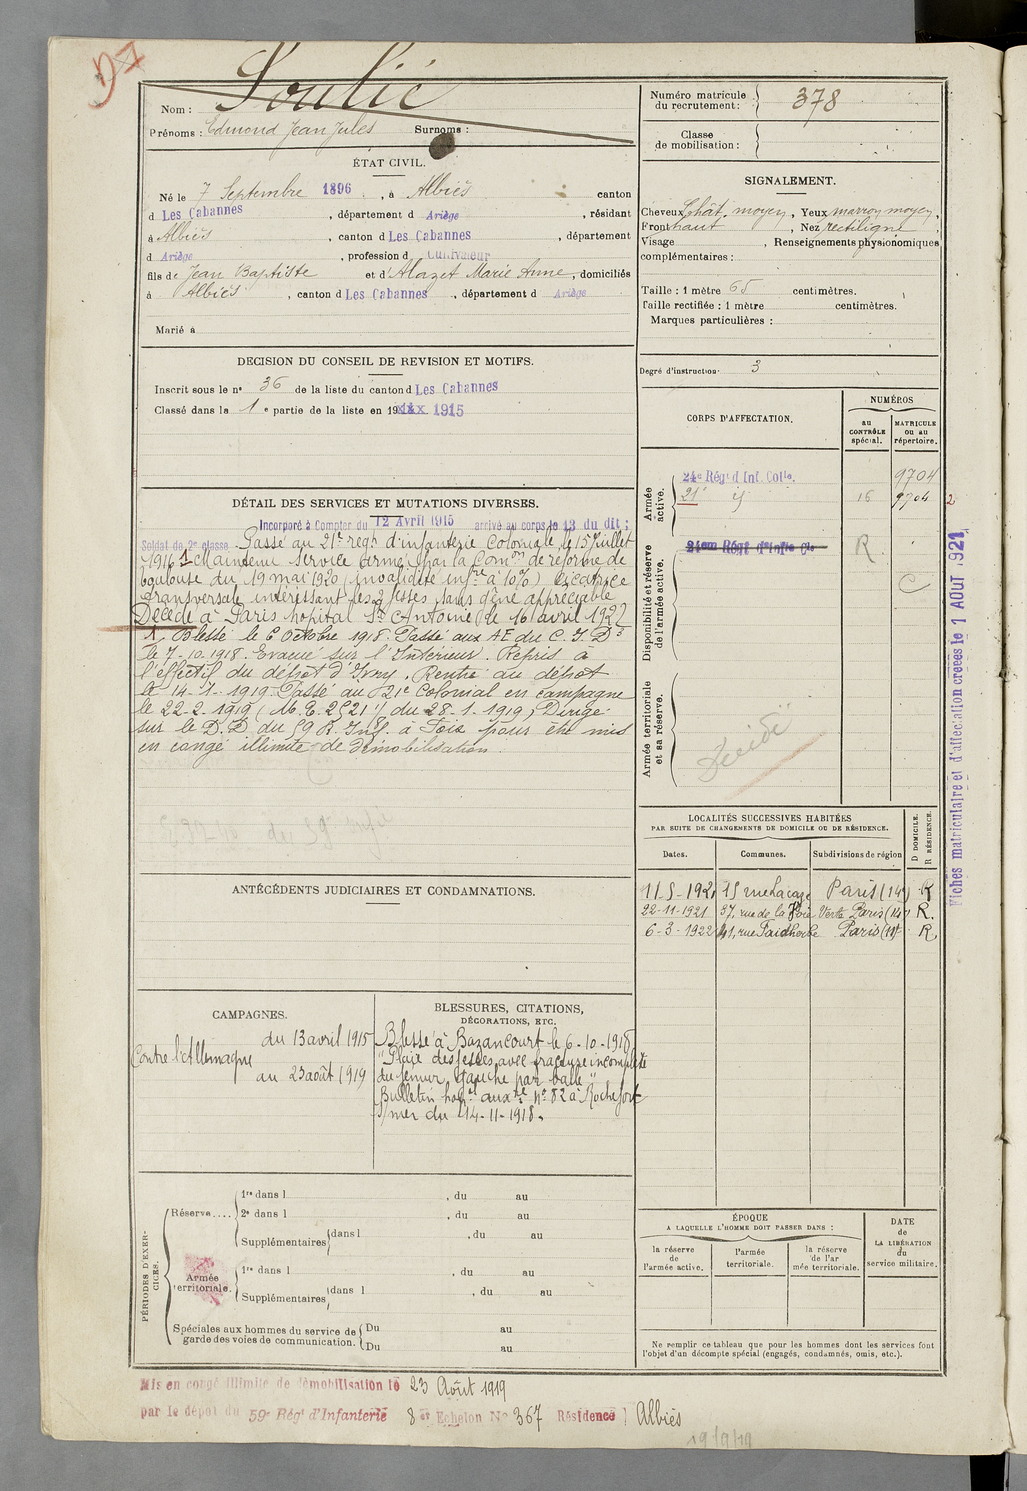 Soulié
Nom :
Prénoms : Edmond Jean Jules Surnoms :
ÉTAT CIVIL.
Né le 7 Septembre 1896, à Albiès canton
d Les Cabannes, département d Ariège, résidant
à Albiès, canton d Les Cabannes, département
d Ariège, profession d Cultivateur
fils de Jean Baptiste et d'Alazet Marie Anne, domiciliés
à Albiès, canton d Les Cabannes, département d Ariège
Marié à
DECISION DU CONSEIL DE REVISION ET MOTIFS.
Inscrit sous le n° 36 de la liste du canton d Les Cabannes
Classé dans la 1e partie de la liste en 19 1915
DÉTAIL DES SERVICES ET MUTATIONS DIVERSES.
Incorporé à Compter du 12 Avril 1915 arrivé au corps le 13 du dit ;
Soldat de 2e classe. Passé au 21e régt d'infanterie Coloniale, le 15 Juillet
1916. 1 Maintenu service armé par la Comon de réforme de
Toulouse du 19 mai 1920 (invalidité infre à 10%) Cicatrice
transversale intéressant les 2 fesses, sans gêne appréciable
Décédé à Paris hôpital St Antoine le 16 avril 1922
1. Blessé le 6 Octobre 1918. Passé aux AE du C. I. D
le 7-10-1918. Evacué sur l'Intérieur. Repris à
l'effectif du dépôt d'Ivry. Rentré au dépôt
le 14-1-1919. Passé au 21e Colonial en campagne
le 22-2-1919 (du 28-1-1919) Dirigé
sur le D.D. du 59 R. Inf. à Foix pour être mis
en congé illimité de démobilisation.
ANTÉCÉDENTS JUDICIAIRES ET CONDAMNATIONS.
CAMPAGNES.
Contre l'Allemagne
du 13 avril 1915
au 23 août 1919
BLESSURES, CITATIONS,
DÉCORATIONS, ETC.
Blessé à Bazancourt le 6-10-1918
"Plaie des fesses avec fracture incomplète
du fémur gauche par balle"
Bulletin hopal auxre N° 82 à Rochefort
s/mer du 14-11-1918.
PÉRIODES D'EXERCICES.
Réserve....
1re dans l , du au
2e dans l , du au
Supplémentaires dans l , du au
Armée
territoriale.
1re dans l , du au
Supplémentaires dans l , du au
Spéciales aux hommes du service de
garde des voies de communication.
Du au
Du au
Mis en congé illimité de démobilisation le 23 Août 1919
par le dépôt du 59e Régt d'Infanterie 8e Echelon N° 367 Résidence Albiès
19/9/19
Numéro matricule
du recrutement : 378
Classe
de mobilisation :
SIGNALEMENT.
Cheveux Chât. moyen, Yeux marron moyen,
Front haut, Nez rectiligne
Visage , Renseignements physionomiques
complémentaires :
Taille : 1 mètre 65 centimètres.
Taille rectifiée : 1 mètre centimètres.
Marques particulières :
Degré d'instruction. 3
CORPS D'AFFECTATION.
NUMÉROS
au
CONTRÔLE
spécial.
MATRICULE
ou au
répertoire.
Armée
active.
24e Régt d Inf. Colle. 9704
21e 16 9704
Disponibilité et réserve
de l'armée active.
R
C
Armée territoriale
et sa réserve.
Décédé
Fiches matriculaire et d'affectation créées le 1 AOUT 1921
LOCALITÉS SUCCESSIVES HABITÉES
PAR SUITE DE CHANGEMENTS DE DOMICILE OU DE RÉSIDENCE.
Dates. Communes. Subdivisions de région
D DOMICILE.
R RÉSIDENCE.
11-5-1921 15 rue Lacaze Paris (14) R
22-11-1921 37, rue de la Voie Verte Paris (14) R.
6-3-1922 41, rue Faidherbe Paris (11) R
ÉPOQUE
A LAQUELLE L'HOMME DOIT PASSER DANS :
la réserve
de
l'armée active.
l'armée
territoriale.
la réserve
de l'ar
mée territoriale.
DATE
de
LA LIBÉRATION
du
service militaire.
Ne remplir ce tableau que pour les hommes dont les services font
l'objet d'un décompte spécial (engagés, condamnés, omis, etc.).